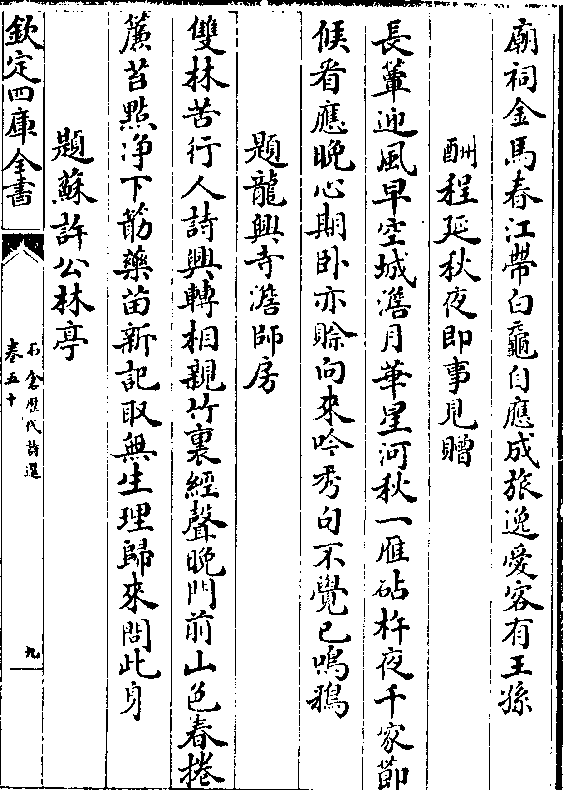 廟祠金馬春江帶白龜自應成旅逸愛客有王孫
酬程延秋夜即事見贈
長簟迎風早空城澹月華星河秋一雁砧杵夜千家節
候看應晚心期卧亦賒向來吟秀句不覺已鳴鴉
題龍興寺澹師房
雙林苦行人詩興轉相親竹裏經聲晚門前山色春捲
簾苔點净下筯藥苗新記取無生理歸來問此身
題蘇許公林亭
欽定四庫全書
石倉歷代詩選
卷五十
九